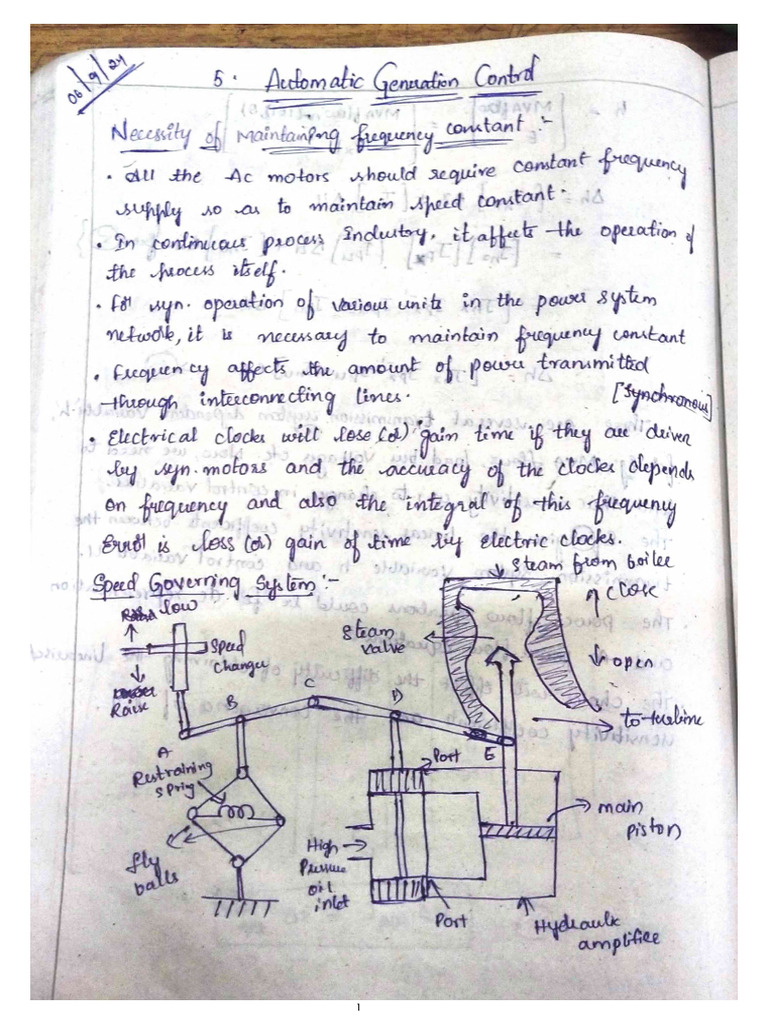 06/9/24
5. Automatic Generation Control
Necessity of Maintaining frequency constant :-
• All the Ac motors should require constant frequency
supply so as to maintain speed constant.
• In continuous process Industry, it affects the operation of
the process itself.
• For syn. operation of various units in the power system
network, it is necessary to maintain frequency constant
• Frequency affects the amount of power transmitted
through interconnecting lines.
[Synchronous]
• Electrical clocks will lose (or) gain time if they are driven
by syn. motors and the accuracy of the clocks depends
on frequency and also the integral of this frequency
Error is loss (or) gain of time by electric clocks.
Speed Governing System :-
Steam from boiler
low
close
Steam
valve
Speed
changer
open
Raise
to turbine
A
B
C
D
E
Restraining
spring
Port
main
piston
fly
balls
High
Pressure
oil
inlet
Port
Hydraulic
amplifier
1